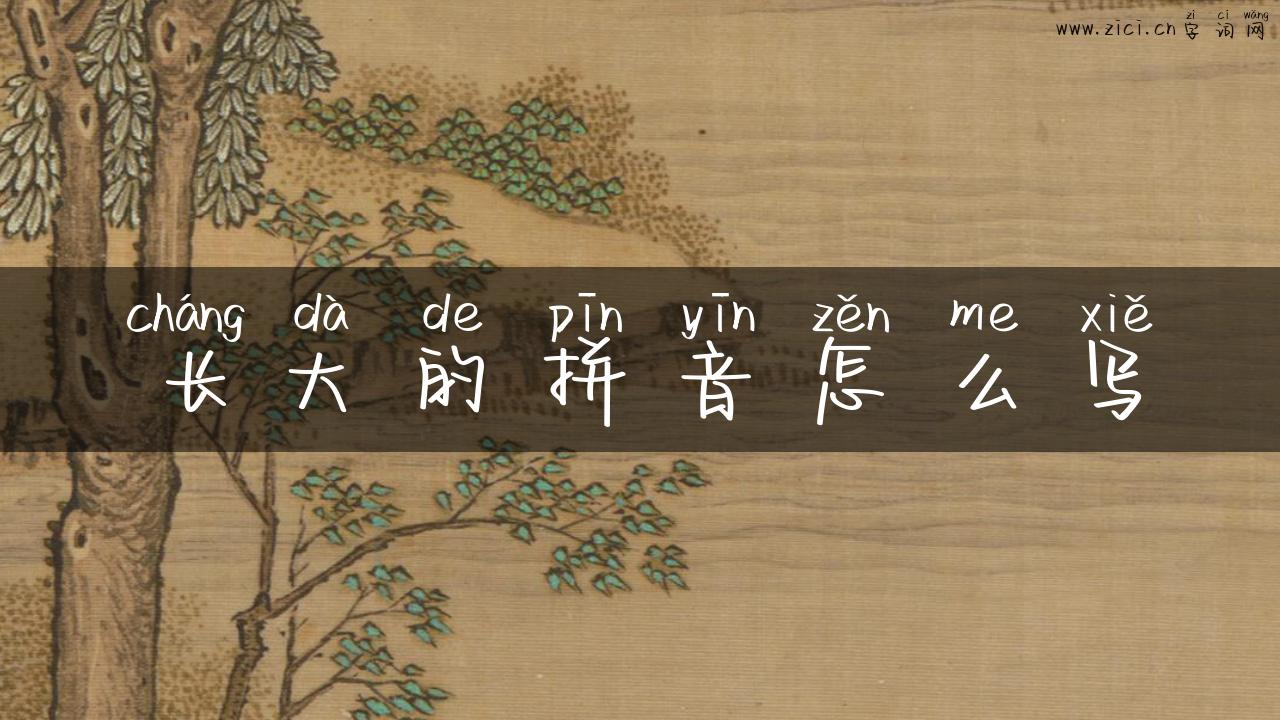 zì cí wǎng
www.zici.cn 字词网
cháng dà de pīn yīn zěn me xiě
长大的拼音怎么写